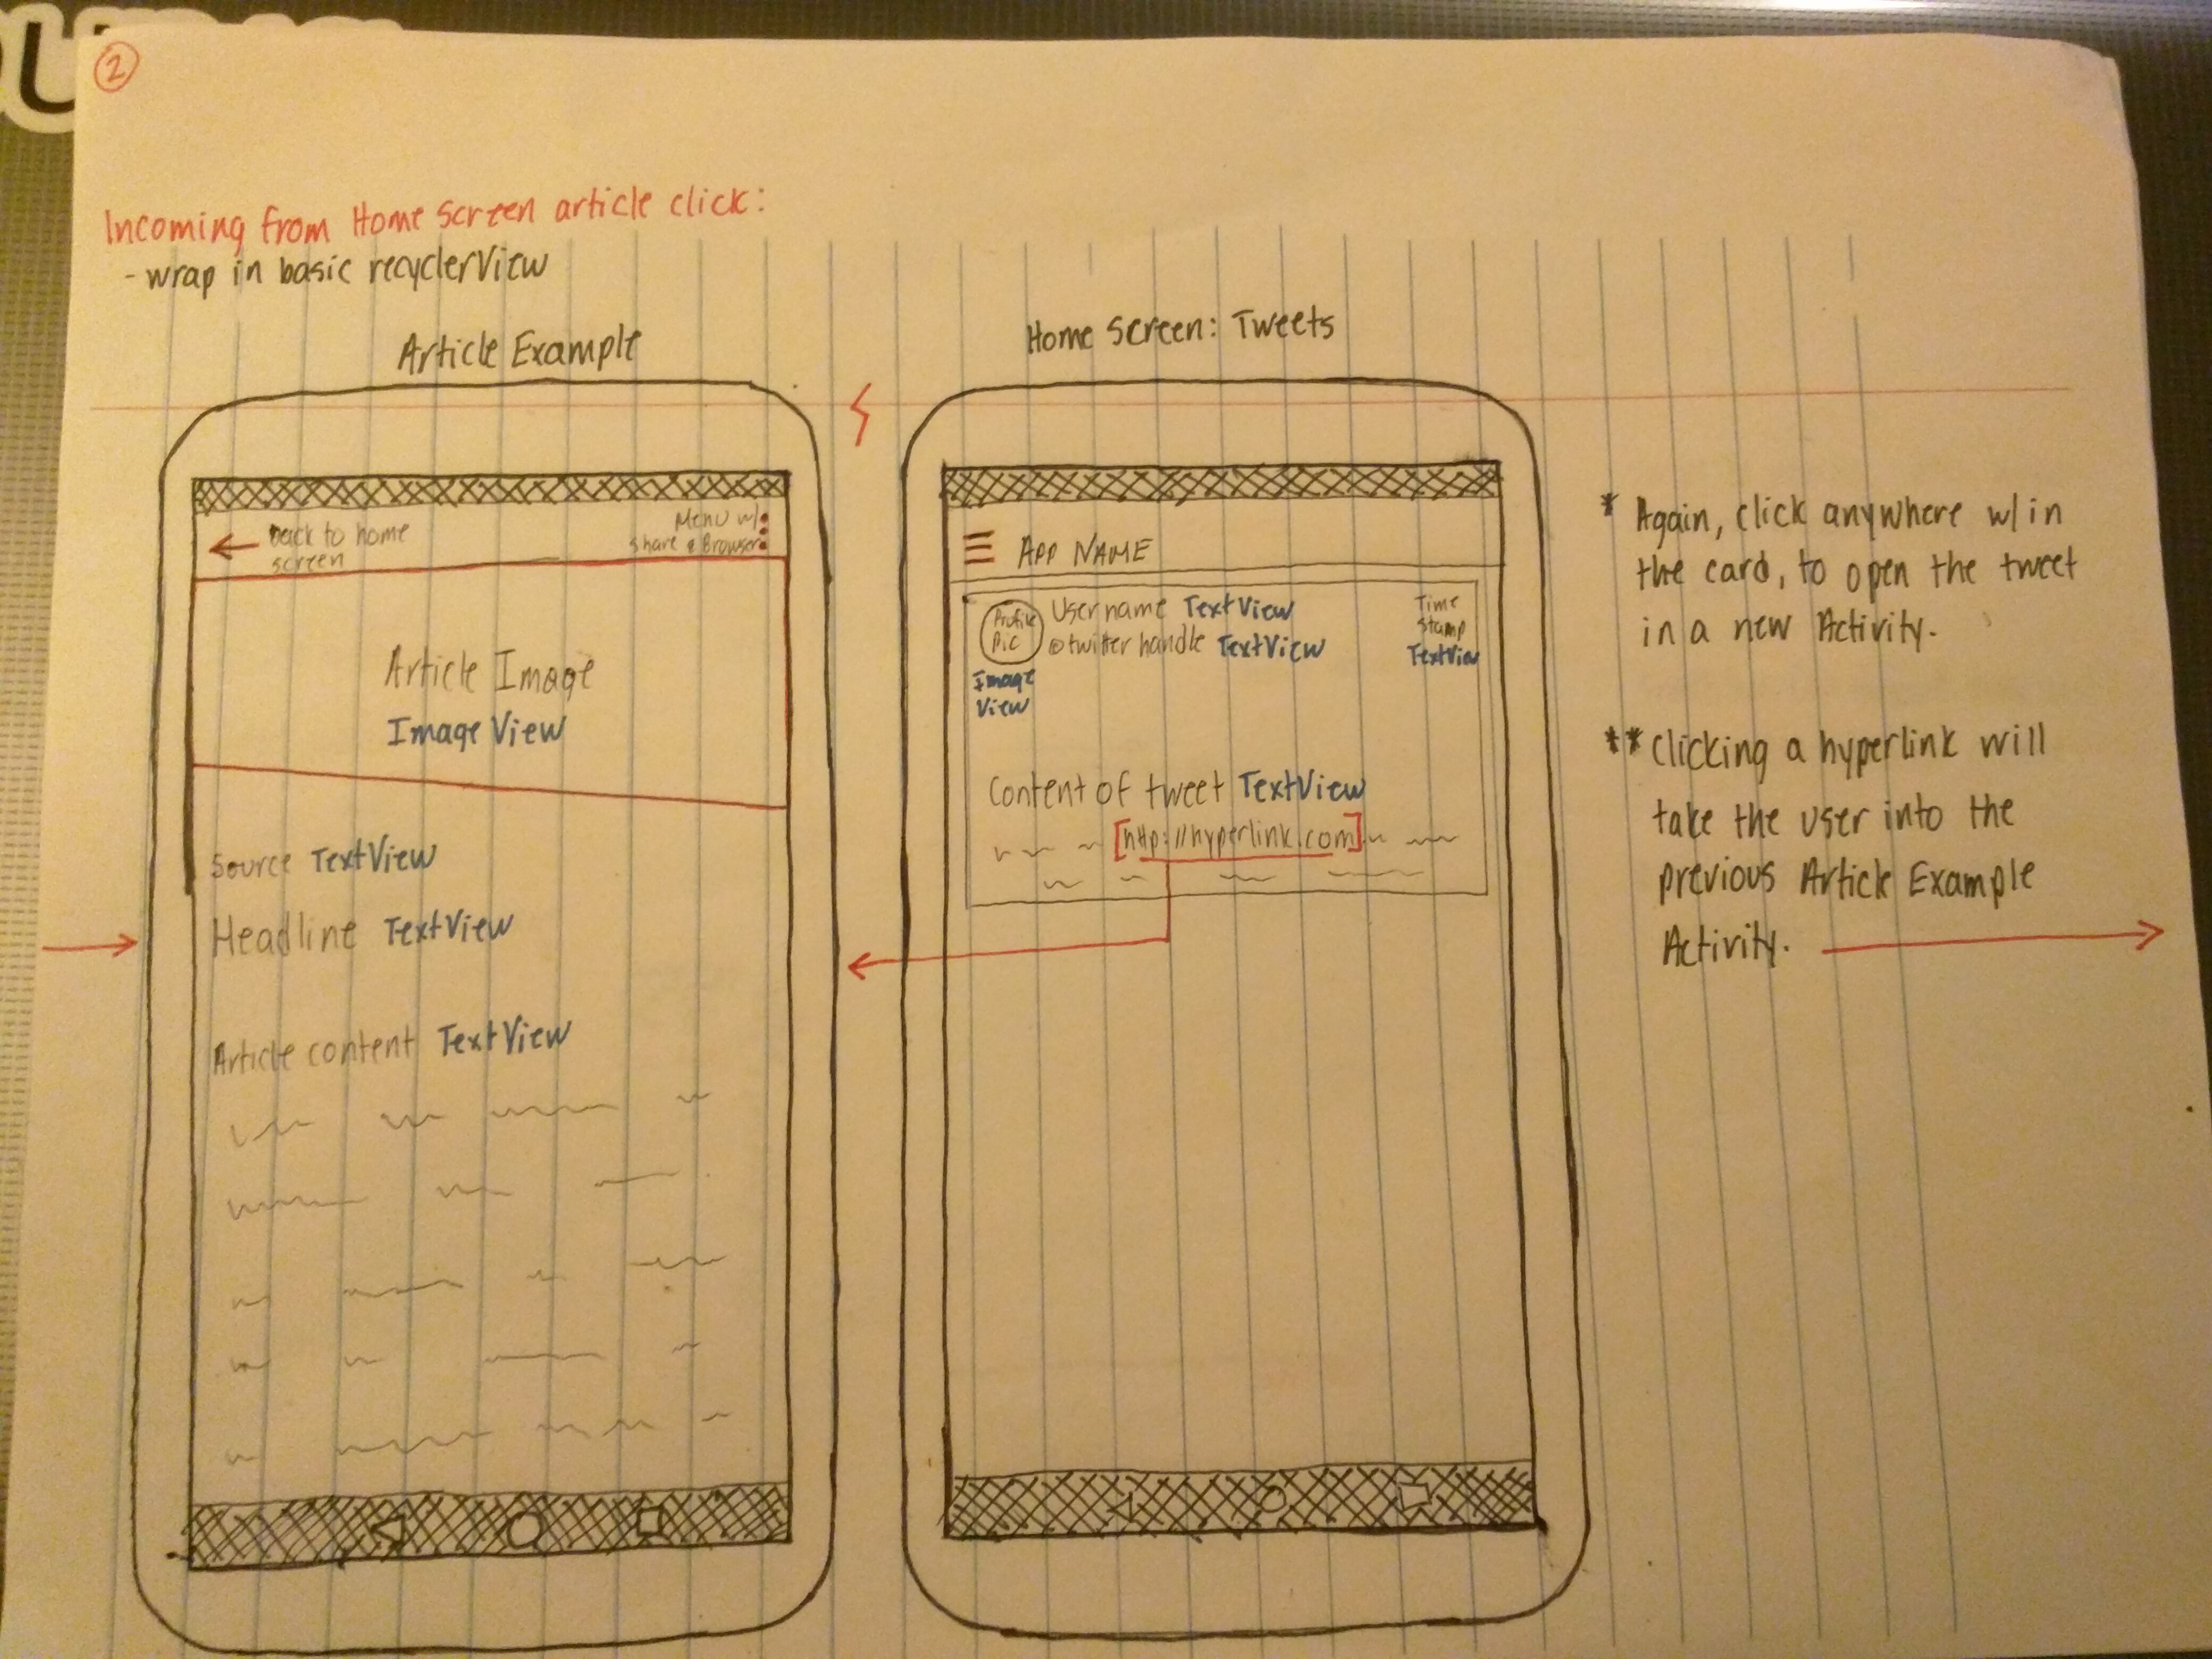 2
Incoming from Home Screen article click:
- wrap in basic recyclerView
Article Example
back to home
screen
Menu w/
share & Browser
Article Image
Image View
Source TextView
Headline TextView
Article content TextView
Home Screen: Tweets
APP NAME
Profile
Pic
Image
View
Username TextView
@twitter handle TextView
Time
Stamp
TextView
Content of tweet TextView
[http://hyperlink.com]
* Again, click anywhere w/in
the card, to open the tweet
in a new Activity.
** Clicking a hyperlink will
take the user into the
previous Article Example
Activity.